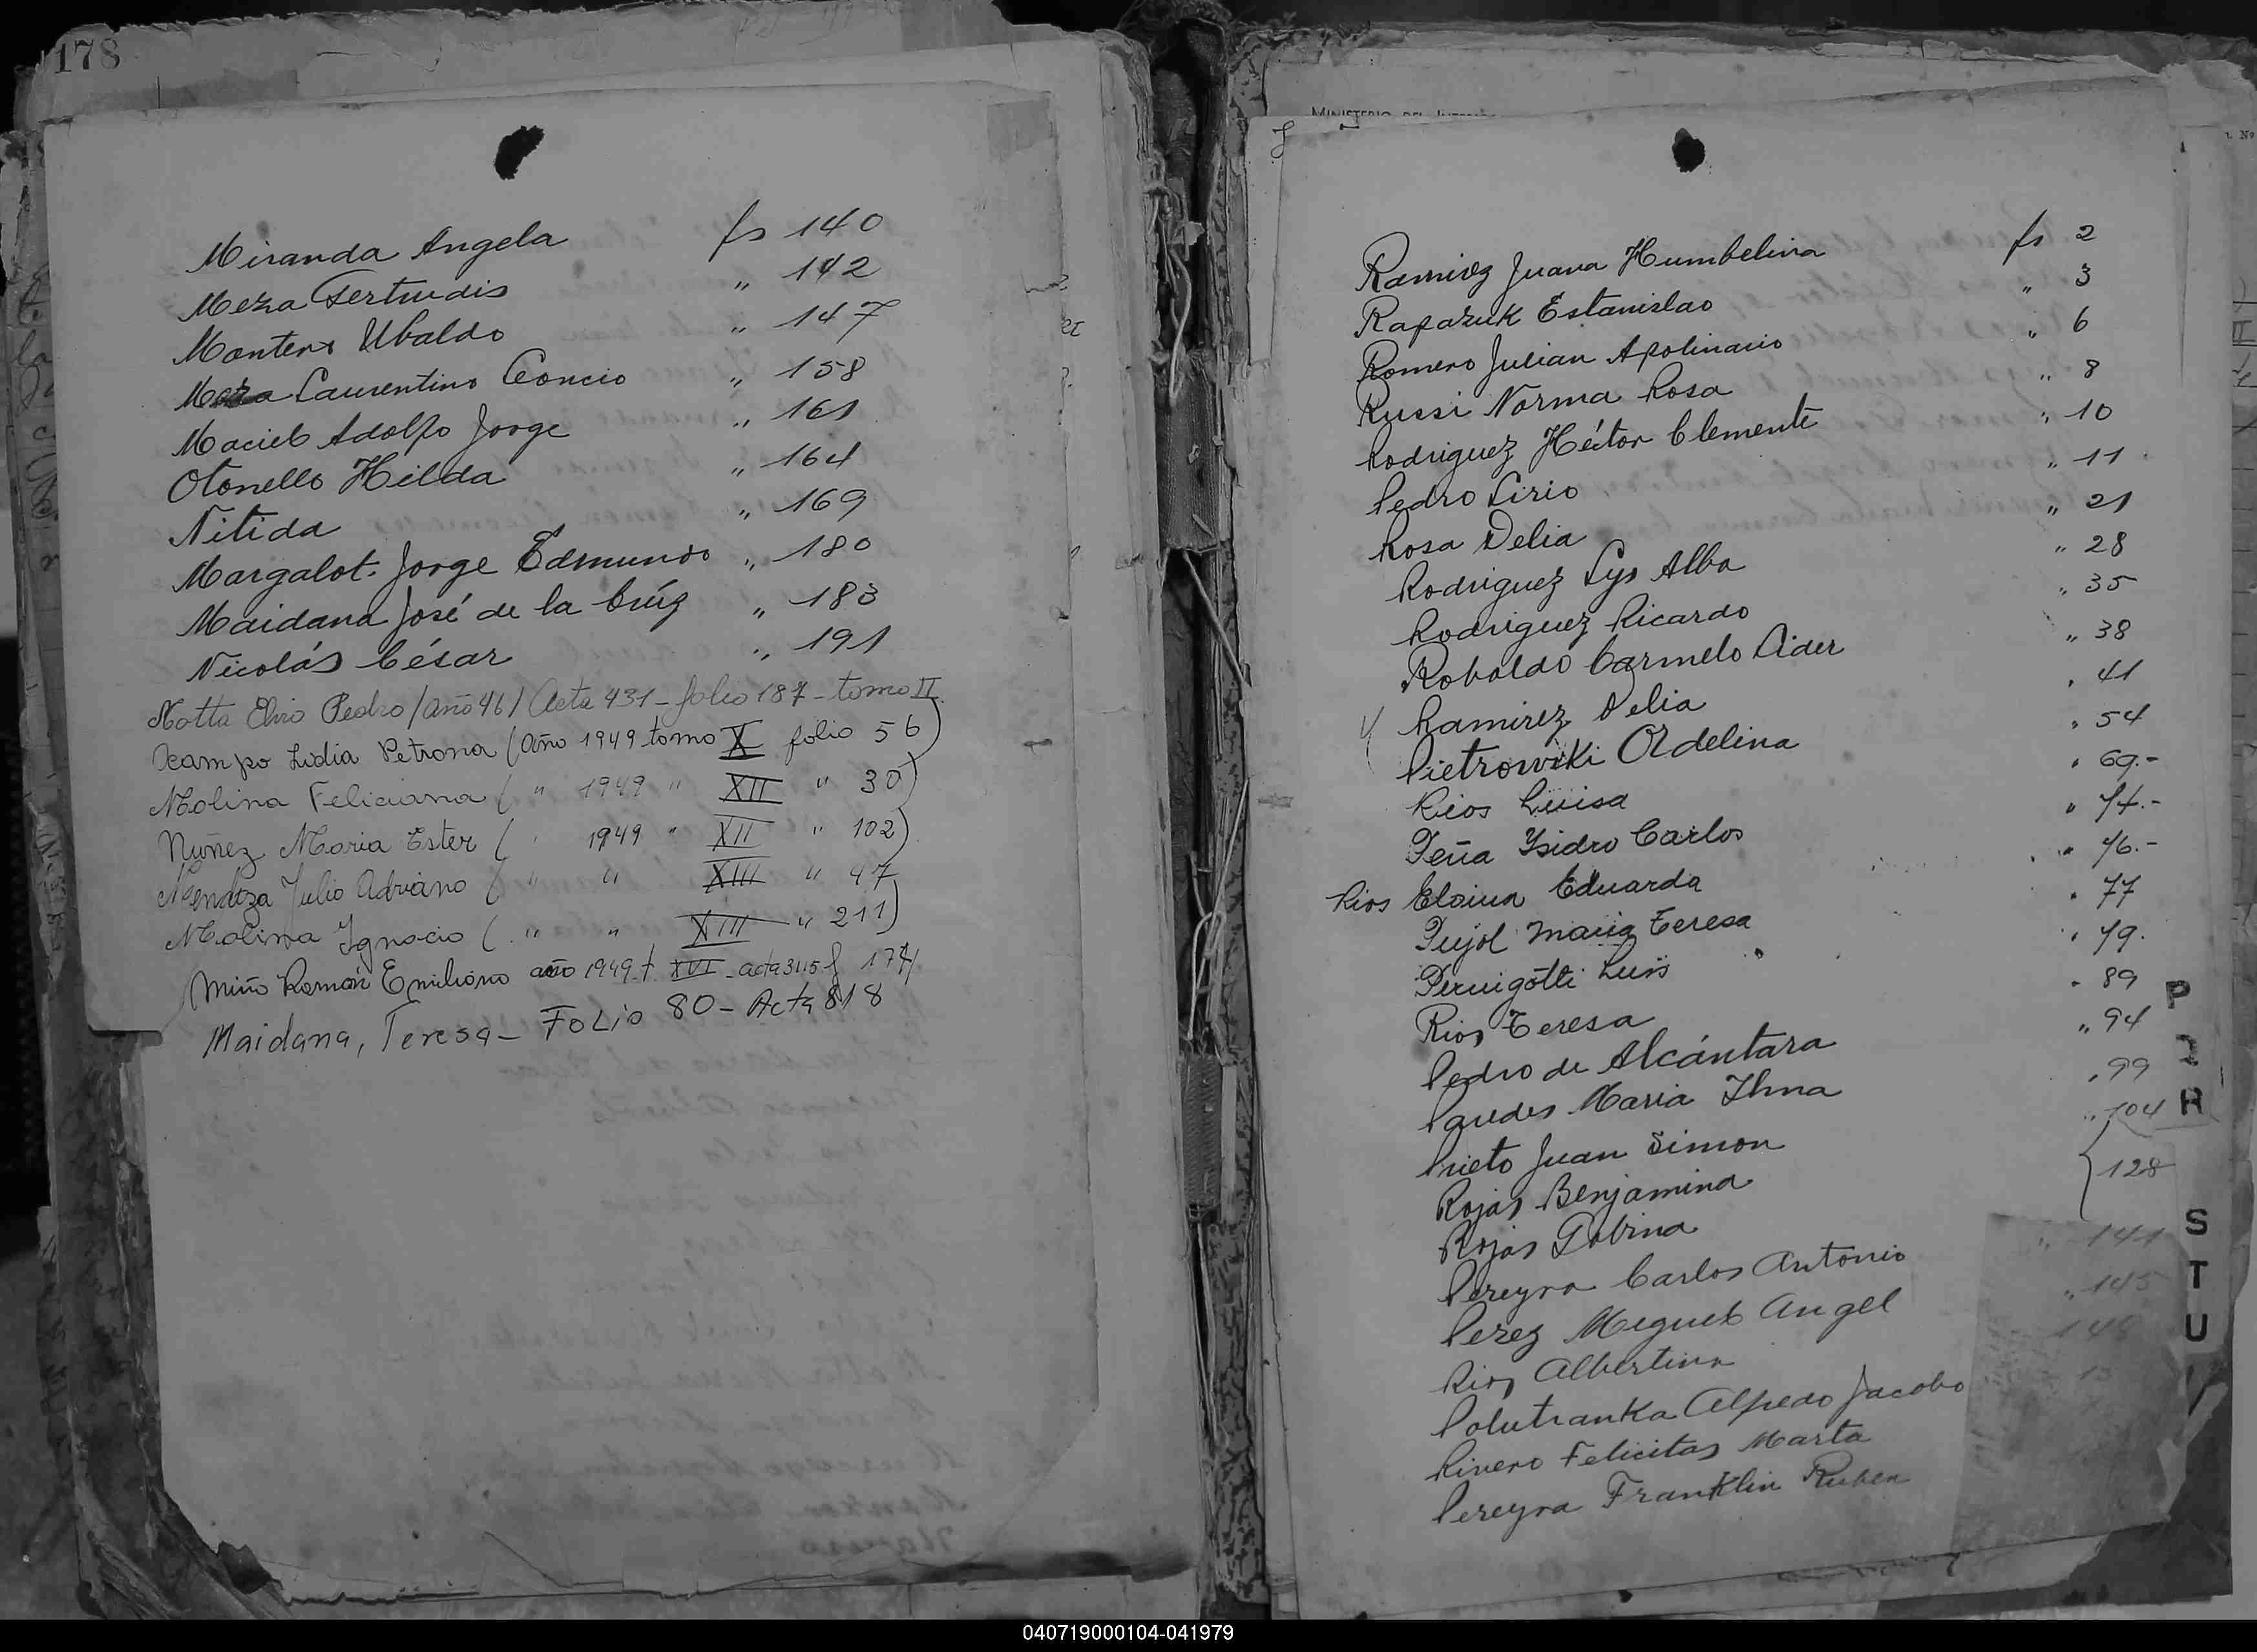 178
Miranda Angela fs 140
Meza Gertrudis " 142
Montero Ubaldo " 147
Meza Laurentino Leoncio " 158
Maciel Adolfo Jorge " 161
Otonello Hilda " 164
Nitida " 169
Margalot Jorge Edmundo " 180
Maidana José de la Crúz " 183
Nicolás César " 191
Notta Elvio Pedro / año 46 / Acta 431 - folio 187 - tomo II
Ocampo Lidia Petrona (año 1949 tomo X folio 56)
Molina Feliciana ( " 1949 " XII " 30)
Nuñez Maria Ester ( " 1949 " XII " 102)
Mendoza Julio Adriano ( " " XIII " 47
Molina Ignacio ( " " XIII " 211)
Miño Ramón Emiliano año 1949 t XVI - acta 3115 f 174
Maidana, Teresa - Folio 80 - Acta 818
MINISTERIO DEL
Ramirez Juana Humbelina fs 2
Rapazuk Estanislao " 3
Romero Julian Apolinario " 6
Russi Norma Rosa " 8
Rodriguez Héctor Clemente " 10
Pedro Lirio " 11
Rosa Delia " 21
Rodriguez Lys Alba " 28
Rodriguez Ricardo " 35
Robaldo Carmelo Aider " 38
Ramirez Delia " 41
Pietrowski Adelina " 54
Rios Luisa " 69.-
Peña Ysidro Carlos " 74.-
Rios Eloina Eduarda " 76.-
Pujol Maria Teresa " 77
Peruigotti Luis " 79.
Rios Teresa " 89
Pedro de Alcántara " 94
Paredes Maria Ilma " 99
Prieto Juan Simon " 104
Rojas Benjamina
Rojas Sabina } 128
Pereyra Carlos Antonio " 141
Perez Miguel Angel " 145
Rios Albertina 148
Polutranka Alfredo Jacobo
Rivero Felicitas Marta
Pereyra Franklin Ruben
P
R
S
T
U
040719000104-041979